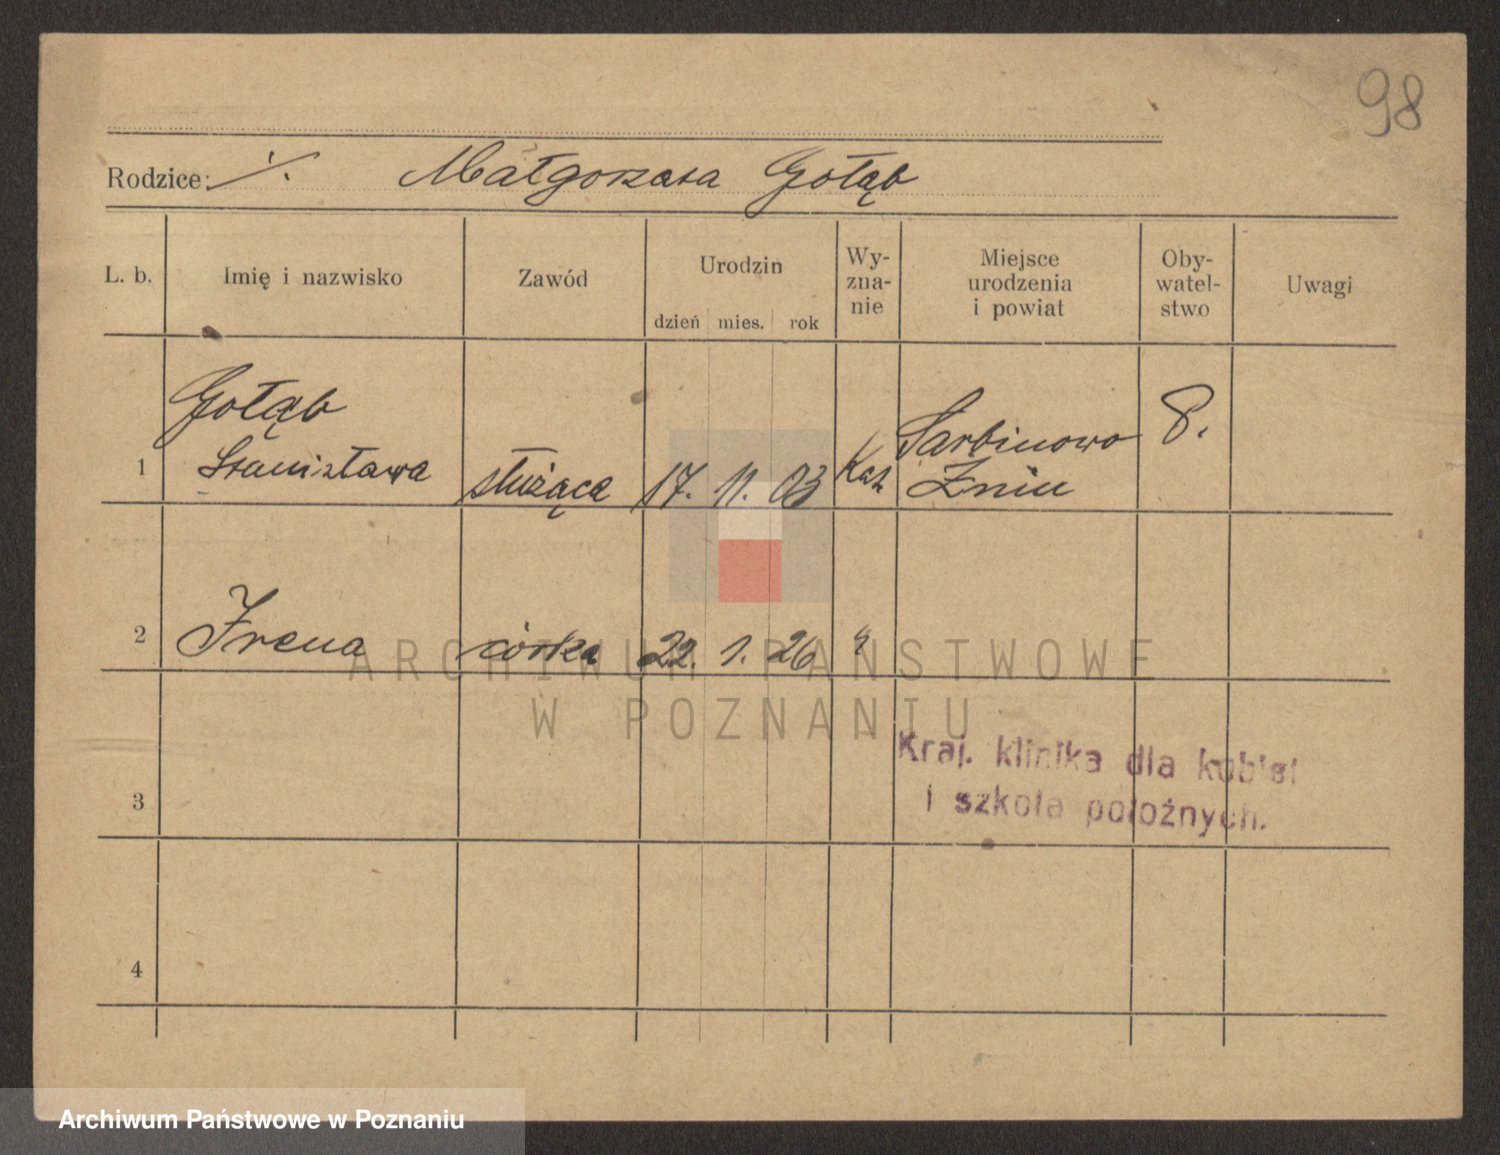 98
Rodzice: ./. Małgorzata Gołąb
L. b. Imię i nazwisko Zawód Urodzin dzień mies. rok Wy-zna-nie Miejsce urodzenia i powiat Oby-watel-stwo Uwagi
Gołąb
1 Stanisława służąca 17. 11. 03 Kat. Sarbinowo Żnin
2 Irena córka 22. 1. 26 "
Kraj. klinika dla kobiet
i szkoła położnych.
3
4
ARCHIWUM PAŃSTWOWE
W POZNANIU
Archiwum Państwowe w Poznaniu